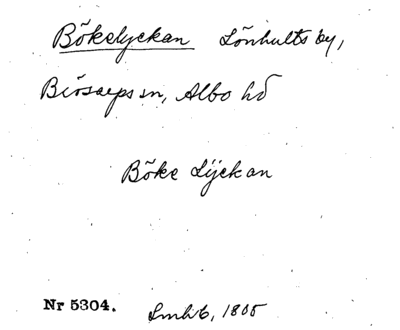 Bökelyckan Lönhults by,
Brösarps sn, Albo hd
Böke Lÿckan
Nr 5304. Lmh 6, 1805